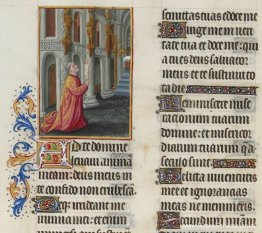 Ad te domine
levavi animā
meam: deus meus in
te confido non erubescā.
Neqȝ irrideant me
inimici mei: etenim
semittas tuas edoce me
Dirige me in veri
tate tua et doce me: quia
tu es deus salvator
meus et te sustinui to
ta die
Reminiscere mise
rationum tuarum
domine: et misericordi
arum tuarum que a
seculo sunt
Delicta iuventutis
mee et ignorancias
meas ne memineris.
Secundum miām